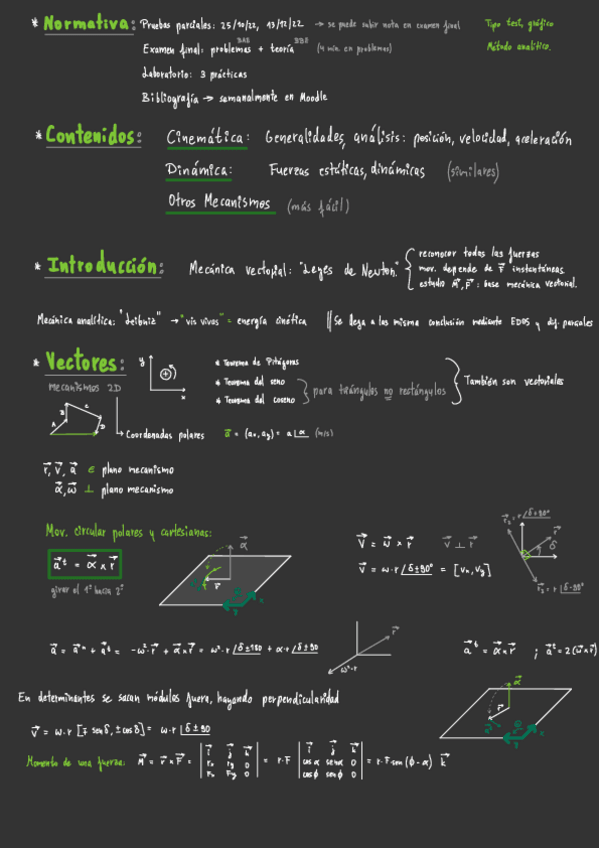 * Normativa: Pruebas parciales: 25/10/22, 13/12/22 → se puede subir nota en examen final Tipo test, gráfico
Examen final: problemas + teoría (4 mín. en problemas) Método analítico.
Laboratorio: 3 prácticas
Bibliografía → semanalmente en Moodle
* Contenidos: Cinemática: Generalidades, análisis: posición, velocidad, aceleración
Dinámica: Fuerzas estáticas, dinámicas (similares)
Otros Mecanismos (más fácil)
* Introducción: Mecánica vectorial: "Leyes de Newton"
reconocer todas las fuerzas
mov. depende de F⃗ instantáneas
estudio M⃗, F⃗ : base mecánica vectorial.
Mecánica analítica: "Leibniz" → "vis vivas" = energía cinética || Se llega a las misma conclusión mediante EDOS y dif. parciales
* Vectores:
y
x
Mecanismos 2D
A B C D
* Teorema de Pitágoras
* Teorema del seno
* Teorema del coseno
para triángulos no rectángulos
También son vectoriales
Coordenadas polares a⃗ = (ax, ay) = a∠α (m/s)
r⃗, v⃗, a⃗ ∈ plano mecanismo
α⃗, ω⃗ ⊥ plano mecanismo
Mov. circular polares y cartesianas:
a⃗ᵗ = α⃗ × r⃗
girar el 1º hacia 2º
α⃗
r⃗
v⃗ = ω⃗ × r⃗ v⃗ ⊥ r⃗
v⃗ = ω·r∠δ±90° = [vx, vy]
r⃗
δ
a⃗ = a⃗ⁿ + a⃗ᵗ = -ω²·r⃗ + α⃗×r⃗ = ω²·r∠δ±180 + α·r∠δ±90
r⃗
ω²·r
a⃗ᵗ = α⃗×r⃗ ; a⃗ᵗ = 2(ω⃗×r⃗)
En determinantes se sacan módulos fuera, hayando perpendicularidad
v⃗ = ω·r [∓ senδ, ±cosδ] = ω·r∠δ±90
α⃗
r⃗
Momento de una fuerza: M⃗ = r⃗×F⃗ = |i⃗ j⃗ k⃗; rx ry 0; Fx Fy 0| = r·F |i⃗ j⃗ k⃗; cosα senα 0; cosϕ senϕ 0| = r·F·sen(ϕ-α) k⃗